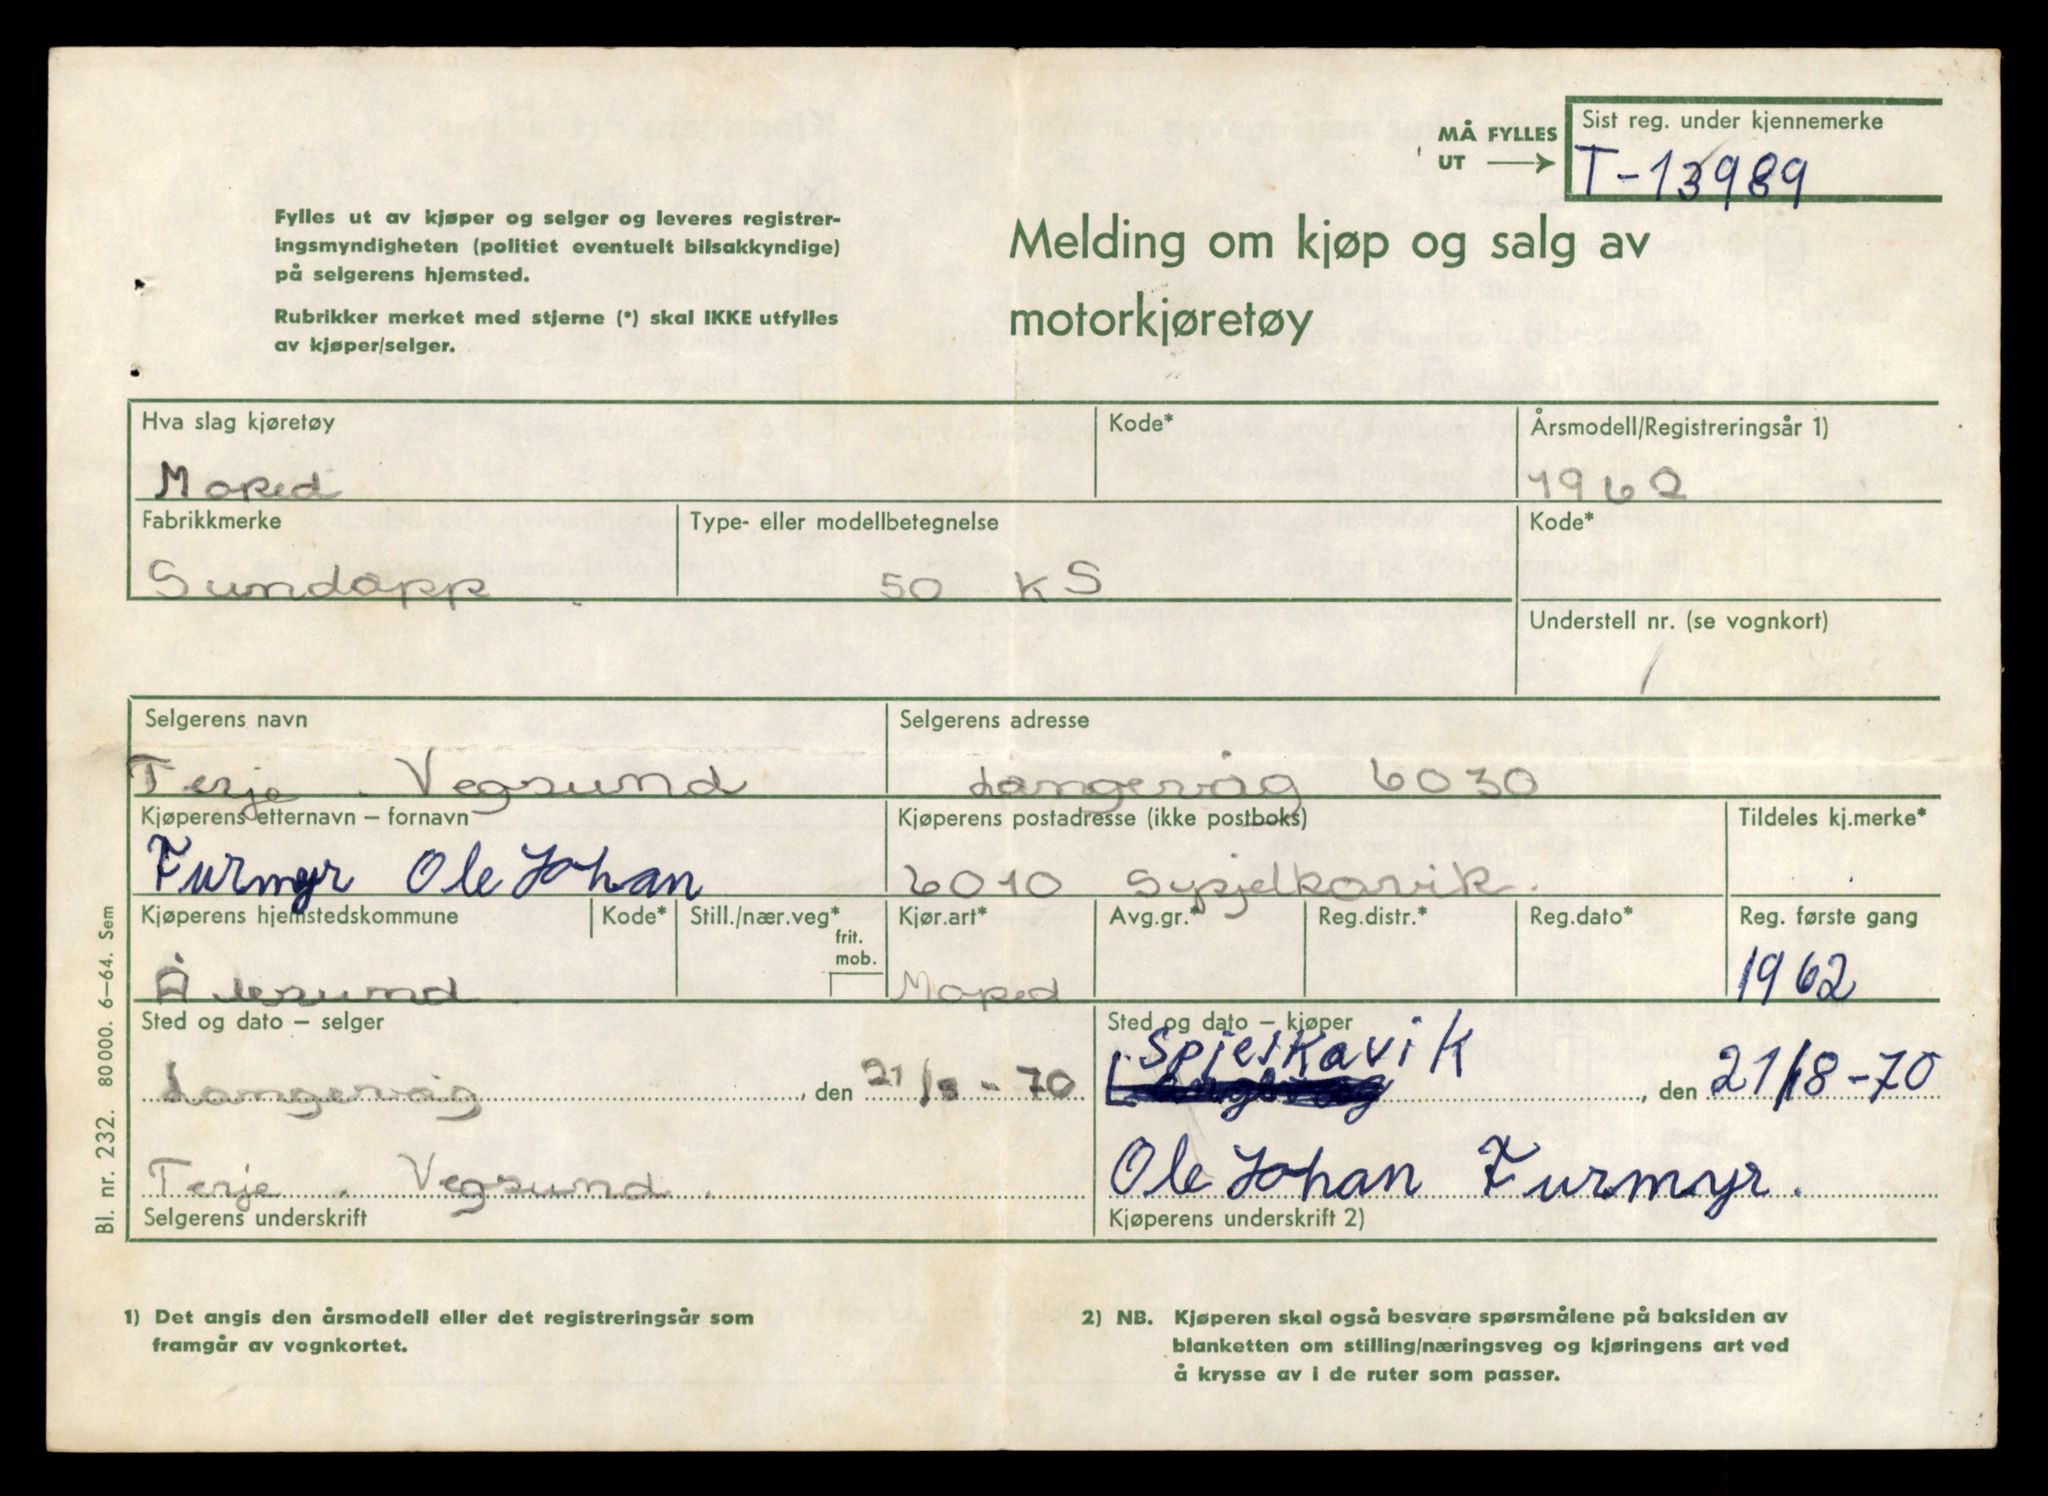 MÅ FYLLES
UT
Sist reg. under kjennemerke
T-13989
Fylles ut av kjøper og selger og leveres registrer-
ingsmyndigheten (politiet eventuelt bilsakkyndige)
på selgerens hjemsted.
Rubrikker merket med stjerne (*) skal IKKE utfylles
av kjøper/selger.
Melding om kjøp og salg av
motorkjøretøy
Hva slag kjøretøy
Moped
Kode*
Årsmodell/Registreringsår 1)
1962
Fabrikkmerke
Sundapp
Type- eller modellbetegnelse
50 KS
Kode*
Understell nr. (se vognkort)
Selgerens navn
Terje Vegsund
Selgerens adresse
Langevåg 6030
Kjøperens etternavn – fornavn
Furmyr Ole Johan
Kjøperens postadresse (ikke postboks)
6010 Sypjelkavik.
Tildeles kj.merke*
Kjøperens hjemstedskommune
Ålesund
Kode*
Still./nær.veg*
frit.
mob.
Kjør.art*
Moped
Avg.gr.*
Reg.distr.*
Reg.dato*
Reg. første gang
1962
Sted og dato – selger
Langevåg, den 21/8-70
Terje Vegsund.
Selgerens underskrift
Sted og dato – kjøper
Spjelkavik, den 21/8-70
Ole Johan Furmyr.
Kjøperens underskrift 2)
Bl. nr. 232. 80 000. 6–64. Sem
1) Det angis den årsmodell eller det registreringsår som
framgår av vognkortet.
2) NB. Kjøperen skal også besvare spørsmålene på baksiden av
blanketten om stilling/næringsveg og kjøringens art ved
å krysse av i de ruter som passer.